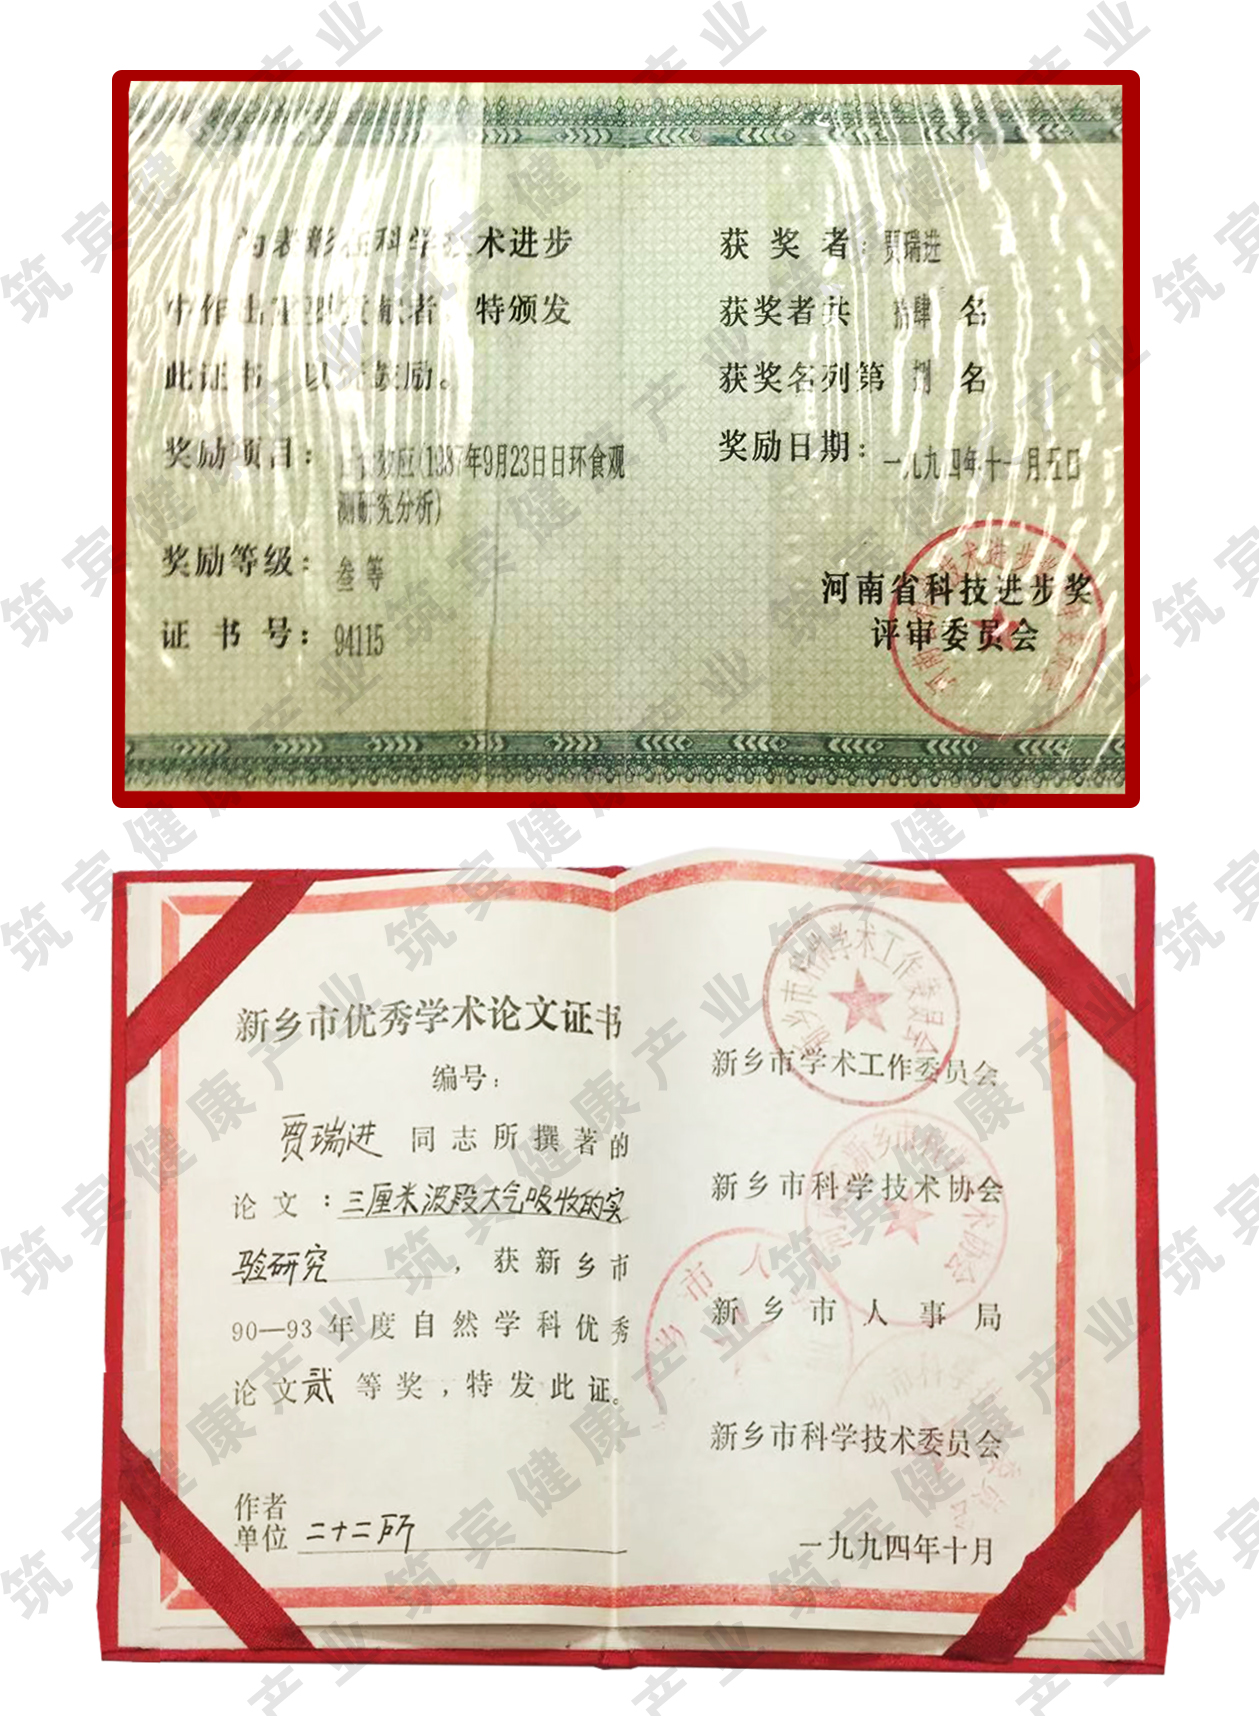 为表彰在科学技术进步
中作出重要贡献者，特颁发
此证书，以资鼓励。
奖励项目：日食效应(1987年9月23日日环食观
测研究分析)
奖励等级：叁等
证书号：94115
获奖者：贾瑞进
获奖者共 拾肆 名
获奖名列第 捌 名
奖励日期：一九九四年十一月五日
河南省科技进步奖
评审委员会
新乡市优秀学术论文证书
编号：
贾瑞进 同志所撰著的
论文：三厘米波段大气吸收的实
验研究，获新乡市
90—93年度自然学科优秀
论文贰等奖，特发此证。
作者
单位 二十二所
新乡市学术工作委员会
新乡市科学技术协会
新乡市人事局
新乡市科学技术委员会
一九九四年十月
筑宾健康产业